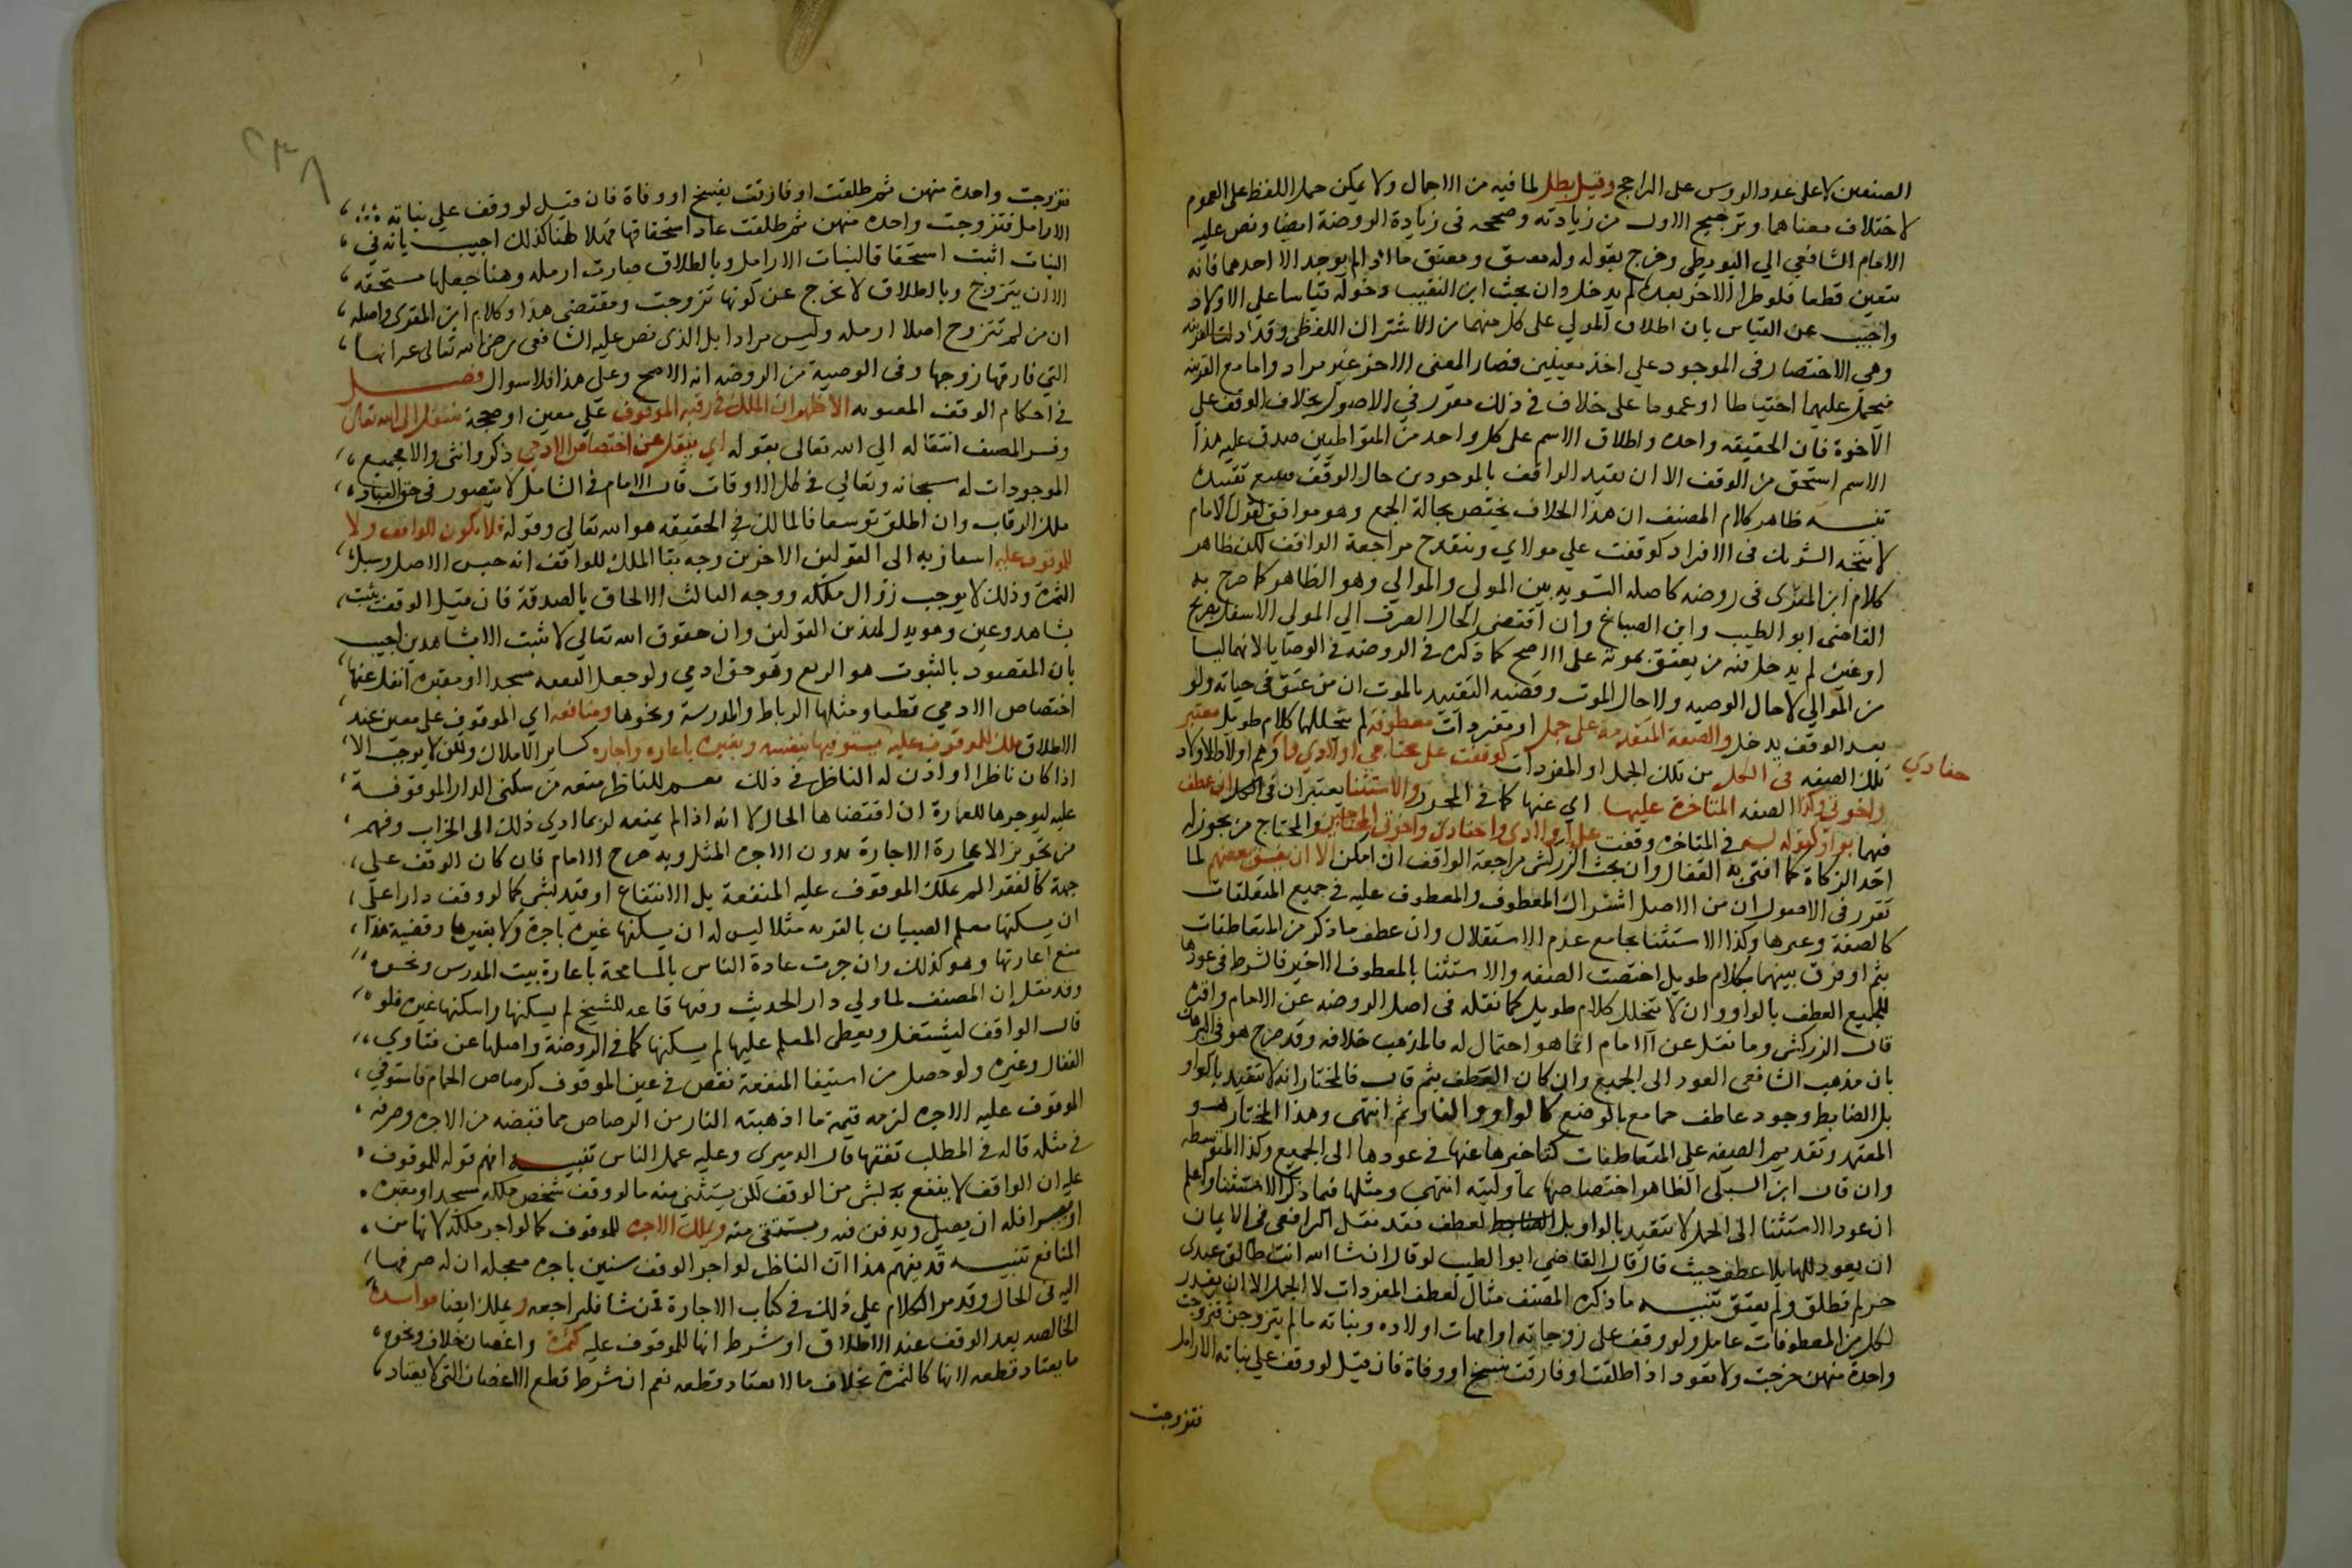 الصنفين لا على عدد الروس على الراجح وقيل يبطل لما فيه من الاجمال ولا يمكن حمل اللفظ على العموم
لاختلاف معناهما وترجيح الاول من زيادته وصححه في زيادة الروضة ايضا ونص عليه
الامام الشافعي الي البويطي وخرج بقوله وله معتق ومعتق ما اذا لم يوجد الا احدهما فانه
يتعين قطعا فلو طرا الاخر بعده لم يدخل وان بحث ابن النقيب دخوله قياسا على الاولاد
واجيب عن القياس بان اطلاق المولي على كل منهما من الاشتراك اللفظي وقد دلت القرينه
وهي الاختصار في الموجود علي احد معنيين فصار المعنى الاخر غير مراد واما مع القرينه
فيحمل عليهما احتياطا او عموما على خلاف في ذلك مقرر في الاصول بخلاف الوقف علي
الاخوة فان الحقيقه واحده واطلاق الاسم على كل واحد من المتواطيين صدق عليه هذا
الاسم استحق من الوقف الا ان يقيد الواقف بالموجودين حال الوقف فيتبع تقييده
تنبيه ظاهر كلام المصنف ان هذا الخلاف يختص بحالة الجمع وهو موافق لقول الامام
لا يتجه التشريك في الافراد كوقفت علي مولاي وينقدح مراجعة الواقف لكن ظاهر
كلام ابن المقري في روضه كاصله التسويه بين المولي والموالي وهو الظاهر كما صرح به
القاضي ابو الطيب وابن الصباغ وان اقتضى الحال الصرف الي المولي الاسفل بفريح
او غيره لم يدخل فيه من يعتق بموته على الاصح كما ذكره في الروضه في الوصايا لانهما ليسا
من الموالي لا حال الوصيه ولا حال الموت وقضيه التقييد بالموت ان من عتق في حياته ولو
بعد الوقف يدخل والصفة المتقدمة على جمل او مفردات معطوفة لم يتخللها كلام طويل معتبر
تلك الصفه في الكل من تلك الجمل او المفردات كوقفت على محتاجي اولادي وهم اولاد الاولاد
حفادي
واخوتي وكذا الصفه المتاخرة عليها اي عنها كما في المحرر والاستثنا يعتبران في الكل ان عطف
فيهما بواو كقوله في المتاخره وقفت على اولادي واحفادي واخوتي المحتاجين والمحتاج من يجوز له
اخذ الزكاة كما افتى به القفال وان بحث الزركشي مراجعة الواقف ان امكن الا ان يفسق بعضهم لما
تقرر في الاصول ان من الاصل اشتراك المعطوف والمعطوف عليه في جميع المتعلقات
كالصفة وغيرها وكذا الاستثنا بجامع عدم الاستقلال وان عطف ما ذكر من المتعاطفات
بثم او فرق بينهما بكلام طويل اختصت الصفه والاستثنا بالمعطوف الاخير فالشرط في عودها
للجميع العطف بالواو وان لا يتخلل كلام طويل كما نقله في اصل الروضه عن الامام واقره
قال الزركشي وما نقل عن الامام انما هو احتمال له فالمذهب خلافه وقد صرح هو في البرهان
بان مذهب الشافعي العود الى الجميع وان كان العطف بثم قال فالمختار انه لا يتقيد بالواو
بل الضابط وجود عاطف جامع بالوضع كالواو والفا وثم انتهى وهذا المختار هو
المعتمد وتقديم الصفه على المتعاطفات كتاخيرها عنها في عودها الى الجميع وكذا المتوسطه
وان قال ابن السبكي الظاهر اختصاصها بما وليته انتهى ومثلها فيما ذكر الاستثنا واعلم
ان عود الاستثنا الى الجمل لا يتقيد بالواو بل الضابط العطف فقد نقل الرافعي في الايمان
ان يعود للها بلا عطف حيث قال قال القاضي ابو الطيب لو قال ان شا الله انت طالق عبدي
حر لم تطلق ولم يعتق تنبيه ما ذكره المصنف مثال لعطف المفردات لا الجمل الا ان يقدر
لكل من المعطوفات عامل ولو وقف على زوجاته او امهات اولاده وبناته ما لم يتزوجن فتزوجت
واحدة منهن خرجت ولا تعود اذا طلقت او فارقت بفسخ او وفاة فان قيل لو وقف علي بناته الارامل
فتزوجت
٢٣٨
فتزوجت واحدة منهن ثم طلقت او فارقت بفسخ او وفاة فان قيل لو وقف علي بناته
الارامل فتزوجت واحده منهن ثم طلقت عاد استحقاقها فهلا هنا كذلك اجيب بانه في
البنات اثبت استحقاقا لبنات الارامل وبالطلاق صارت ارمله وهنا جعلها مستحقه
الا ان يتزوج وبالطلاق لا تخرج عن كونها تزوجت ومقتضى هذا وكلام ابن المقري واصله
ان من لم تتزوج اصلا ارمله وليس مرادا بل الذي نص عليه الشافعي رضي الله تعالى عنه انها
التي فارقها زوجها وفي الوصية من الروضه انه الاصح وعلى هذا فلا سوال فصل
في احكام الوقف المعنويه الاظهر ان الملك في رقبة الموقوف علي معين او جهة ينتقل الى الله تعالى
وفسر المصنف انتقاله الي الله تعالى بقوله اي ينفك عن اختصاص الادمي ذكر وانثى والا فجميع
الموجودات له سبحانه وتعالي في كل الاوقات قال الامام في الشامل لا يتصور في حق العباد
ملك الرقاب وان اطلق توسعا فالمالك في الحقيقه هو الله تعالي وقوله فلا يكون للواقف ولا
للموقوف عليه اشعار به الى القولين الاخرين وجه بقا الملك للواقف انه حبس الاصل وسبل
الثمره وذلك لا يوجب زوال ملكه ووجه الثالث الالحاق بالصدقة فان قيل الوقف يثبت
بشاهد ويمين وهو يدل لهذين القولين وان حقوق الله تعالي لا تثبت الا بشاهدين اجيب
بان المقصود بالثبوت هو الريع وهو حق ادمي ولو جعل البقعه مسجدا او مقبره انفك عنها
اختصاص الادمي قطعا ومثلها الرباط والمدرسة ونحوها ومنافعه اي الموقوف على معين عند
الاطلاق ملك للموقوف عليه يستوفيها بنفسه وبغيره باعاره واجاره كساير الاملاك ولكن لا يوجر الا
اذا كان ناظرا او اذن له الناظر في ذلك نعم للناظر منعه من سكنى الدار الموقوفة
عليه ليوجرها للعمارة ان اقتضاها الحال لانه اذا لم يمنعه لربما ادي ذلك الى الخراب وفهم
من تجويز الاعارة الاجارة بدون الاجره المثل وبه صرح الامام فان كان الوقف على
جهة كالفقرا لم يملك الموقوف عليه المنفعة بل الانتفاع او قيد بشي كما لو وقف دارا على
ان يسكنها معلم الصبيان بالقريه مثلا ليس له ان يسكنها غيره باجرة ولا بغيرها وقضية هذا
منع اعارتها وهو كذلك وان جرت عادة الناس بالمسامحة باعارة بيت المدرس ونحوه
وقد نقل ان المصنف لما ولي دار الحديث وفيها قاعه للشيخ لم يسكنها واسكنها غيره فلو
قال الواقف ليشتغل ويعطى المعلم عليها لم يسكنها كما في الروضة واصلها عن فتاوي
القفال وغيره ولو حصل من استيفا المنفعة نقص في عين الموقوف كرصاص الحمام فاستوفي
الموقوف عليه الاجره لزمه قيمة ما اذهبته النار من الرصاص مما قبضه من الاجره وصرفه
في مثله قاله في المطلب تفقها قال الدميري وعليه عمل الناس تنبيه افهم قوله للموقوف
عليه ان الواقف لا ينفع به لشي من الوقف لكن يستثنى منه ما لو وقف شخص ملكه مسجدا او مقبره
او بيرا فله ان يصلي ويدفن فيه ويستقي منه ويملك الاجره للموقوف كما لو اجر ملكه لانها من
المنافع تنبيه قد يفهم هذا ان الناظر لو اجر الوقف سنين باجره معجله ان له صرفها
اليه في الحال وقد مر الكلام علي ذلك في كتاب الاجارة فمن شا فليراجعه ويملك ايضا فوايده
الخالصه بعد الوقف عند الاطلاق او شرط انها للموقوف عليه كثمرة واغصان خلاف ونحوه
ما يعتاد قطعه لانها كالثمرة بخلاف ما لا يعتاد قطعه نعم ان شرط قطع الاغصان التي لا يعتاد